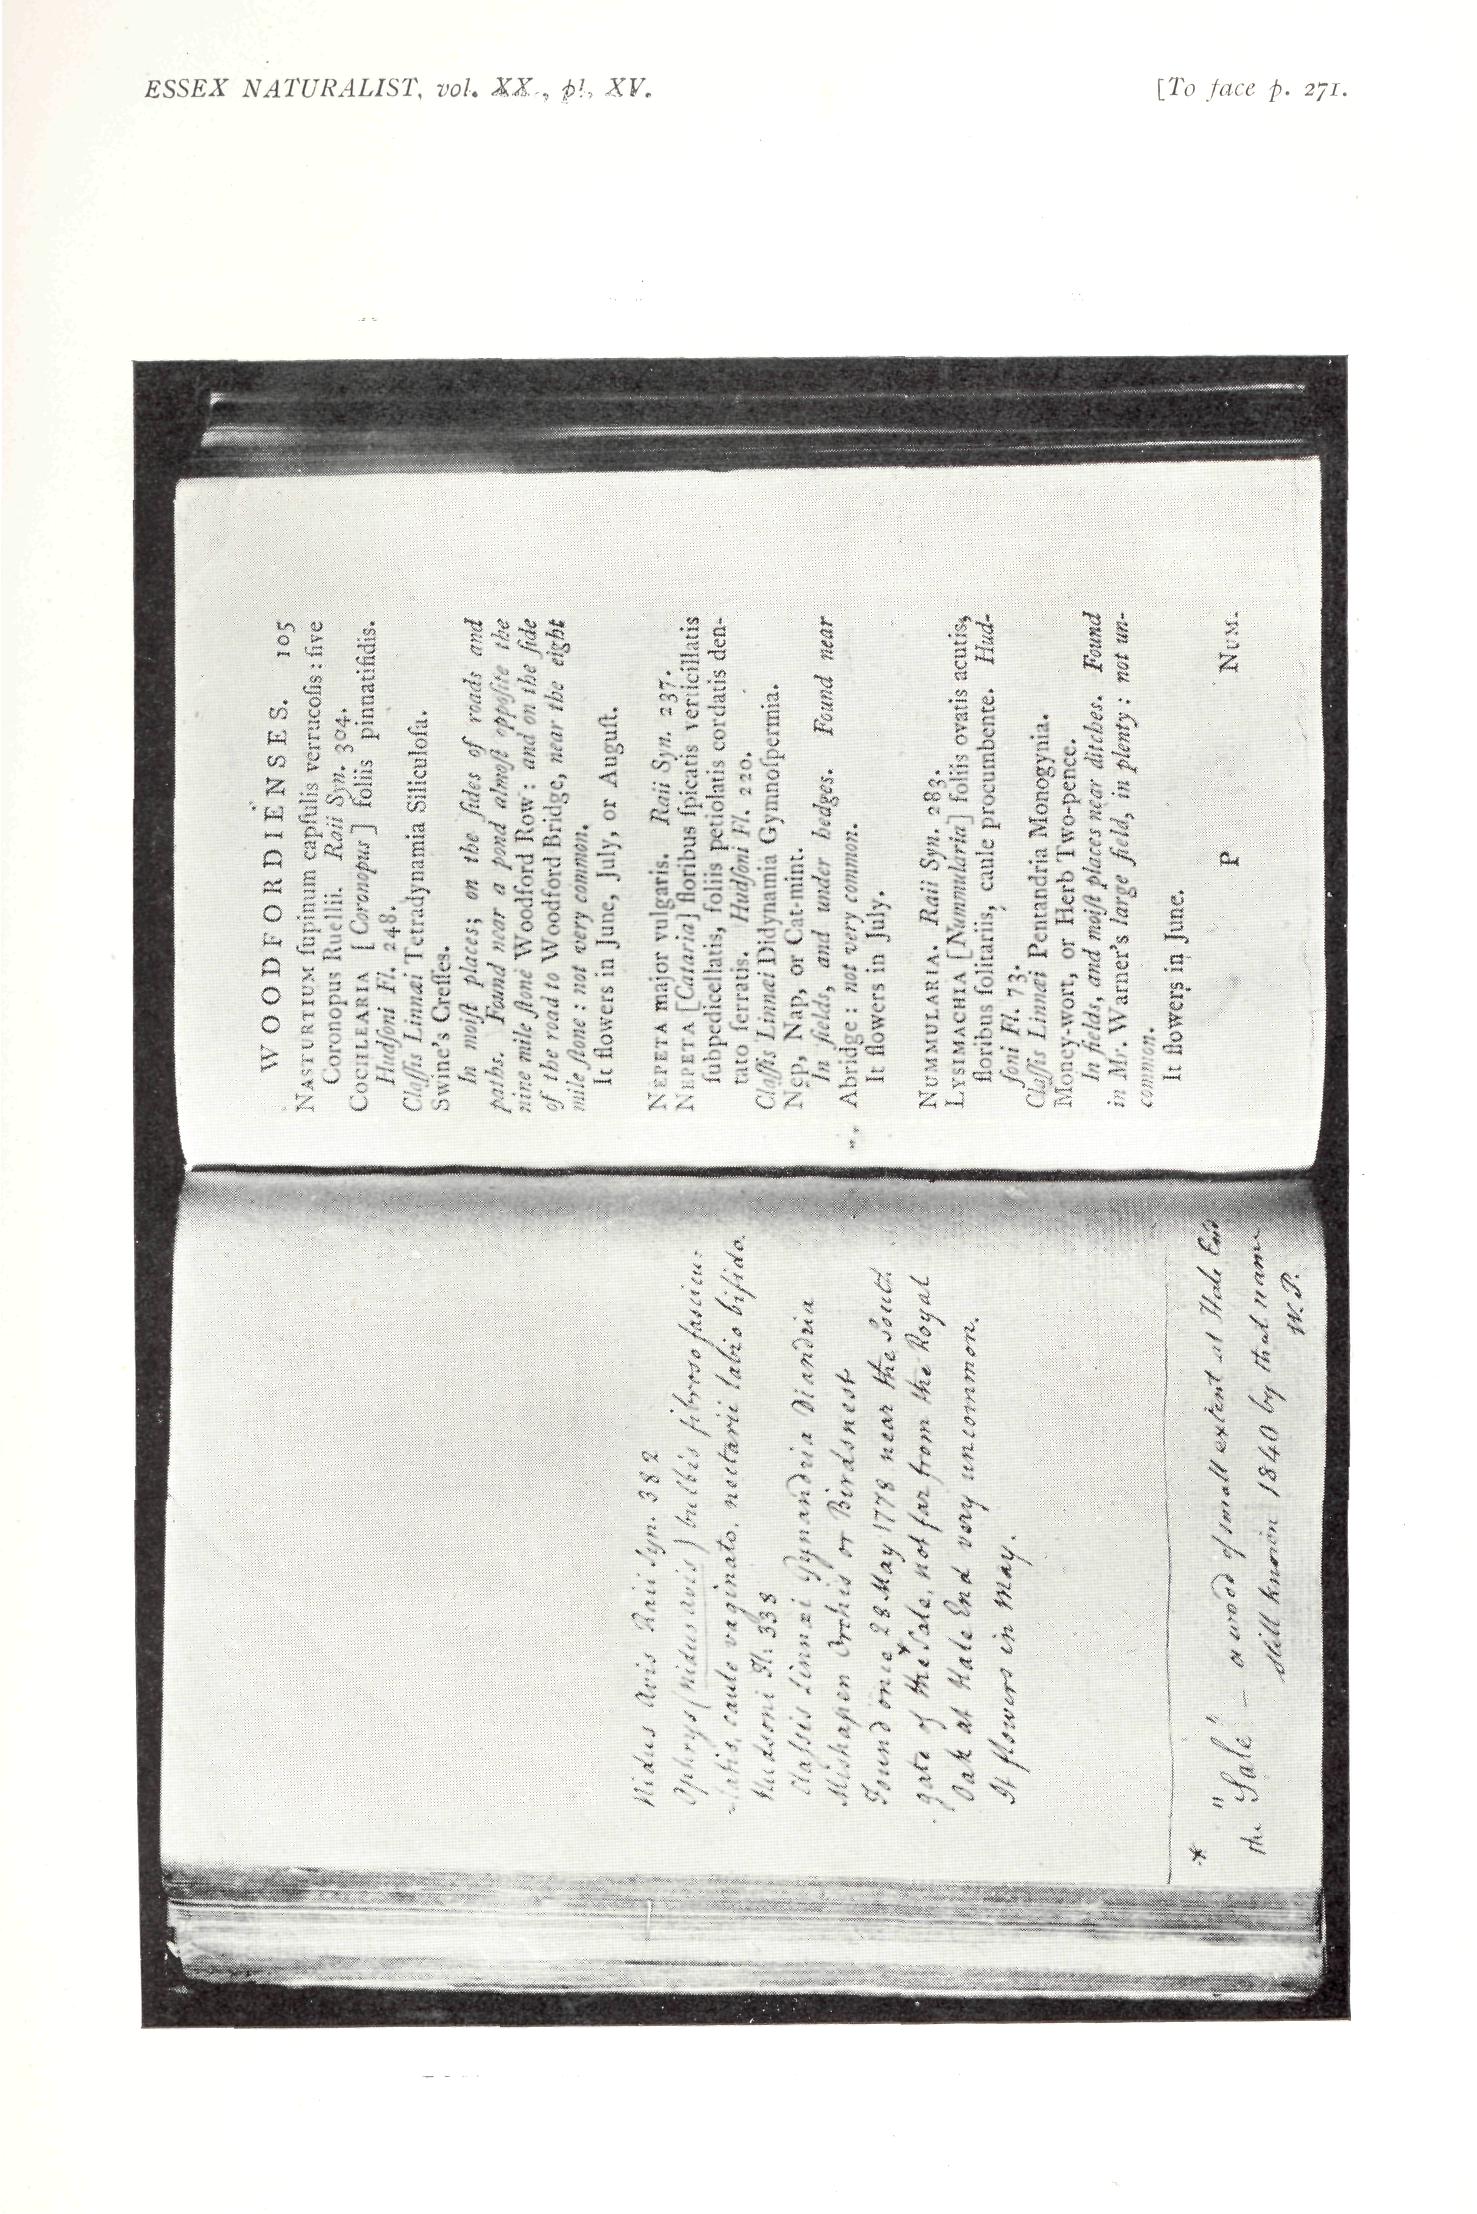 ESSEX NATURALIST, vol. XX., pl. XV.
[To face p. 271.
Nidus Avis Raii Syn. 382
Ophrys (nidus avis) bulbis fibroso fascicu-
-latis, caule vaginato, nectarii labio bifido.
Hudsoni Fl: 338
Claſsis Linnæi Gynandria Diandria
Mishapen Orchis or Birdsnest
Found once 28 May 1778 near the South
gate of the *Sale, not far from the Royal
Oak at Hale End very uncommon.
It flowers in May.
* "
the "Sale" — a wood of small extent at Hale End
still known 1840 by that name
W.P.
WOODFORDIENSES. 105
NASTURTIUM ſupinum capſulis verrucoſis: ſive
Coronopus Ruellii. Raii Syn. 304.
COCHLEARIA [Coronopus] foliis pinnatifidis.
Hudſoni Fl. 248.
Claſſis Linnæi Tetradynamia Siliculoſa.
Swine's Creſſes.
In moiſt places; on the ſides of roads and
paths. Found near a pond almoſt oppoſite the
nine mile ſtone Woodford Row: and on the ſide
of the road to Woodford Bridge, near the eight
mile ſtone: not very common.
It flowers in June, July, or Auguſt.
NEPETA major vulgaris. Raii Syn. 237.
NEPETA [Cataria] floribus ſpicatis verticillatis
ſubpedicellatis, foliis petiolatis cordatis den-
tato ſerratis. Hudſoni Fl. 220.
Claſſis Linnæi Didynamia Gymnoſpermia.
Nep, Nap, or Cat-mint.
In fields, and under hedges. Found near
Abridge: not very common.
It flowers in July.
NUMMULARIA. Raii Syn. 283.
LYSIMACHIA [Nummularia] foliis ovatis acutis,
floribus ſolitariis, caule procumbente. Hud-
ſoni Fl. 73.
Claſſis Linnæi Pentandria Monogynia.
Money-wort, or Herb Two-pence.
In fields, and moiſt places near ditches. Found
in Mr. Warner's large field, in plenty: not un-
common.
It flowers in June.
P NUM.